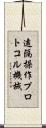 遠隔操作プロ
トコル機械